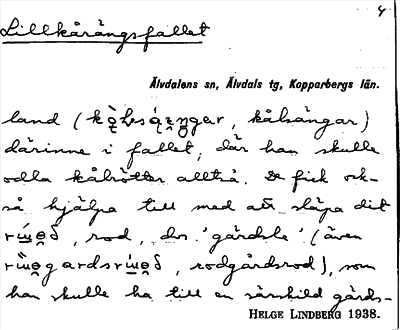 4
Lillkårängsfallet
Älvdalens sn, Älvdals tg, Kopparbergs län.
land ( , kålsängar)
därinne i fallet, där han skulle
odla kålrötter alltså. De fick ock-
så hjälpa till med att släpa dit
 , rod, dvs. 'gärdsle' (även
 , rodgårdsrod), som
han skulle ha till en särskild gärds-
HELGE LINDBERG 1938.